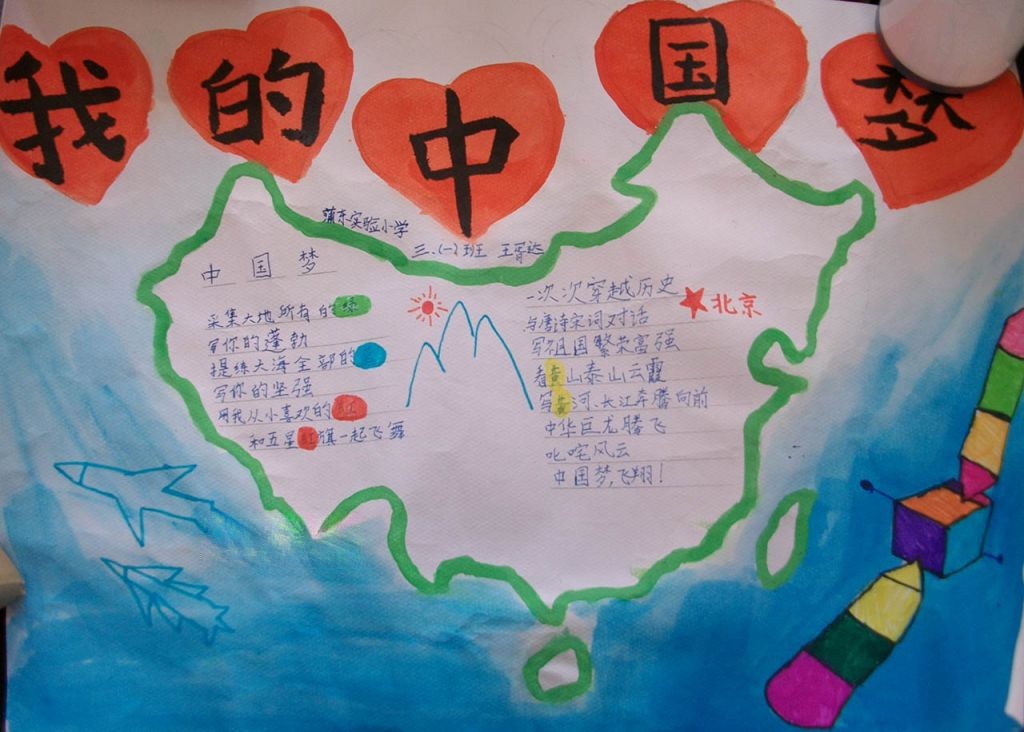 我的中国梦
蒲东实验小学
三.(一)班 王胥达
中国梦
采集大地所有的绿
写你的蓬勃
提练大海全部的
写你的坚强
用我从小喜欢的红
和五星红旗一起飞舞
一次次穿越历史
与唐诗宋词对话
写祖国繁荣富强
看黄山泰山云霞
写黄河、长江奔腾向前
中华巨龙腾飞
叱咤风云
中国梦,飞翔!
北京